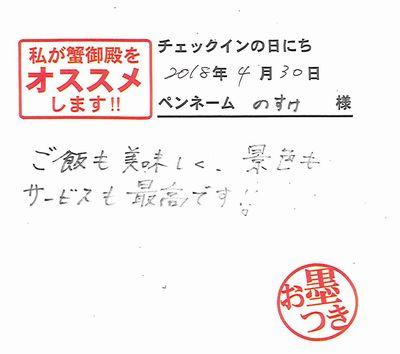 私が蟹御殿を
オススメ
します!!
チェックインの日にち
2018年4月30日
ペンネーム のすけ 様
ご飯も美味しく、景色も
サービスも最高です!!
お墨つき